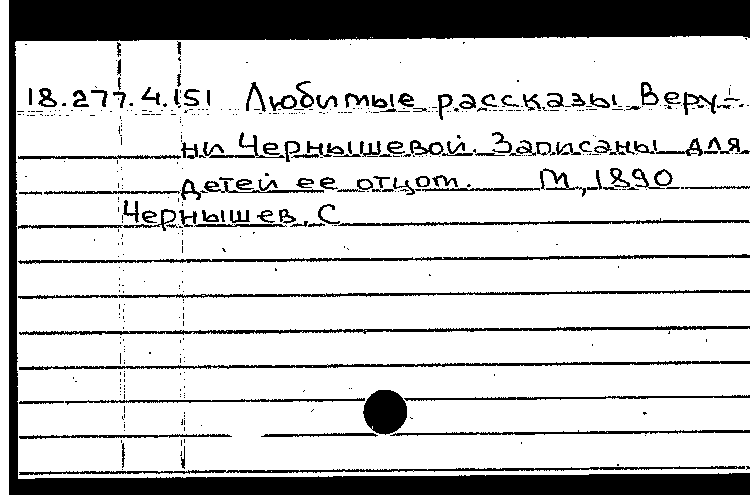 18.277.4.151 Любимые рассказы Веру-
ни Чернышевой. Записаны для
детей ее отцом. М, 1890
Чернышев, С